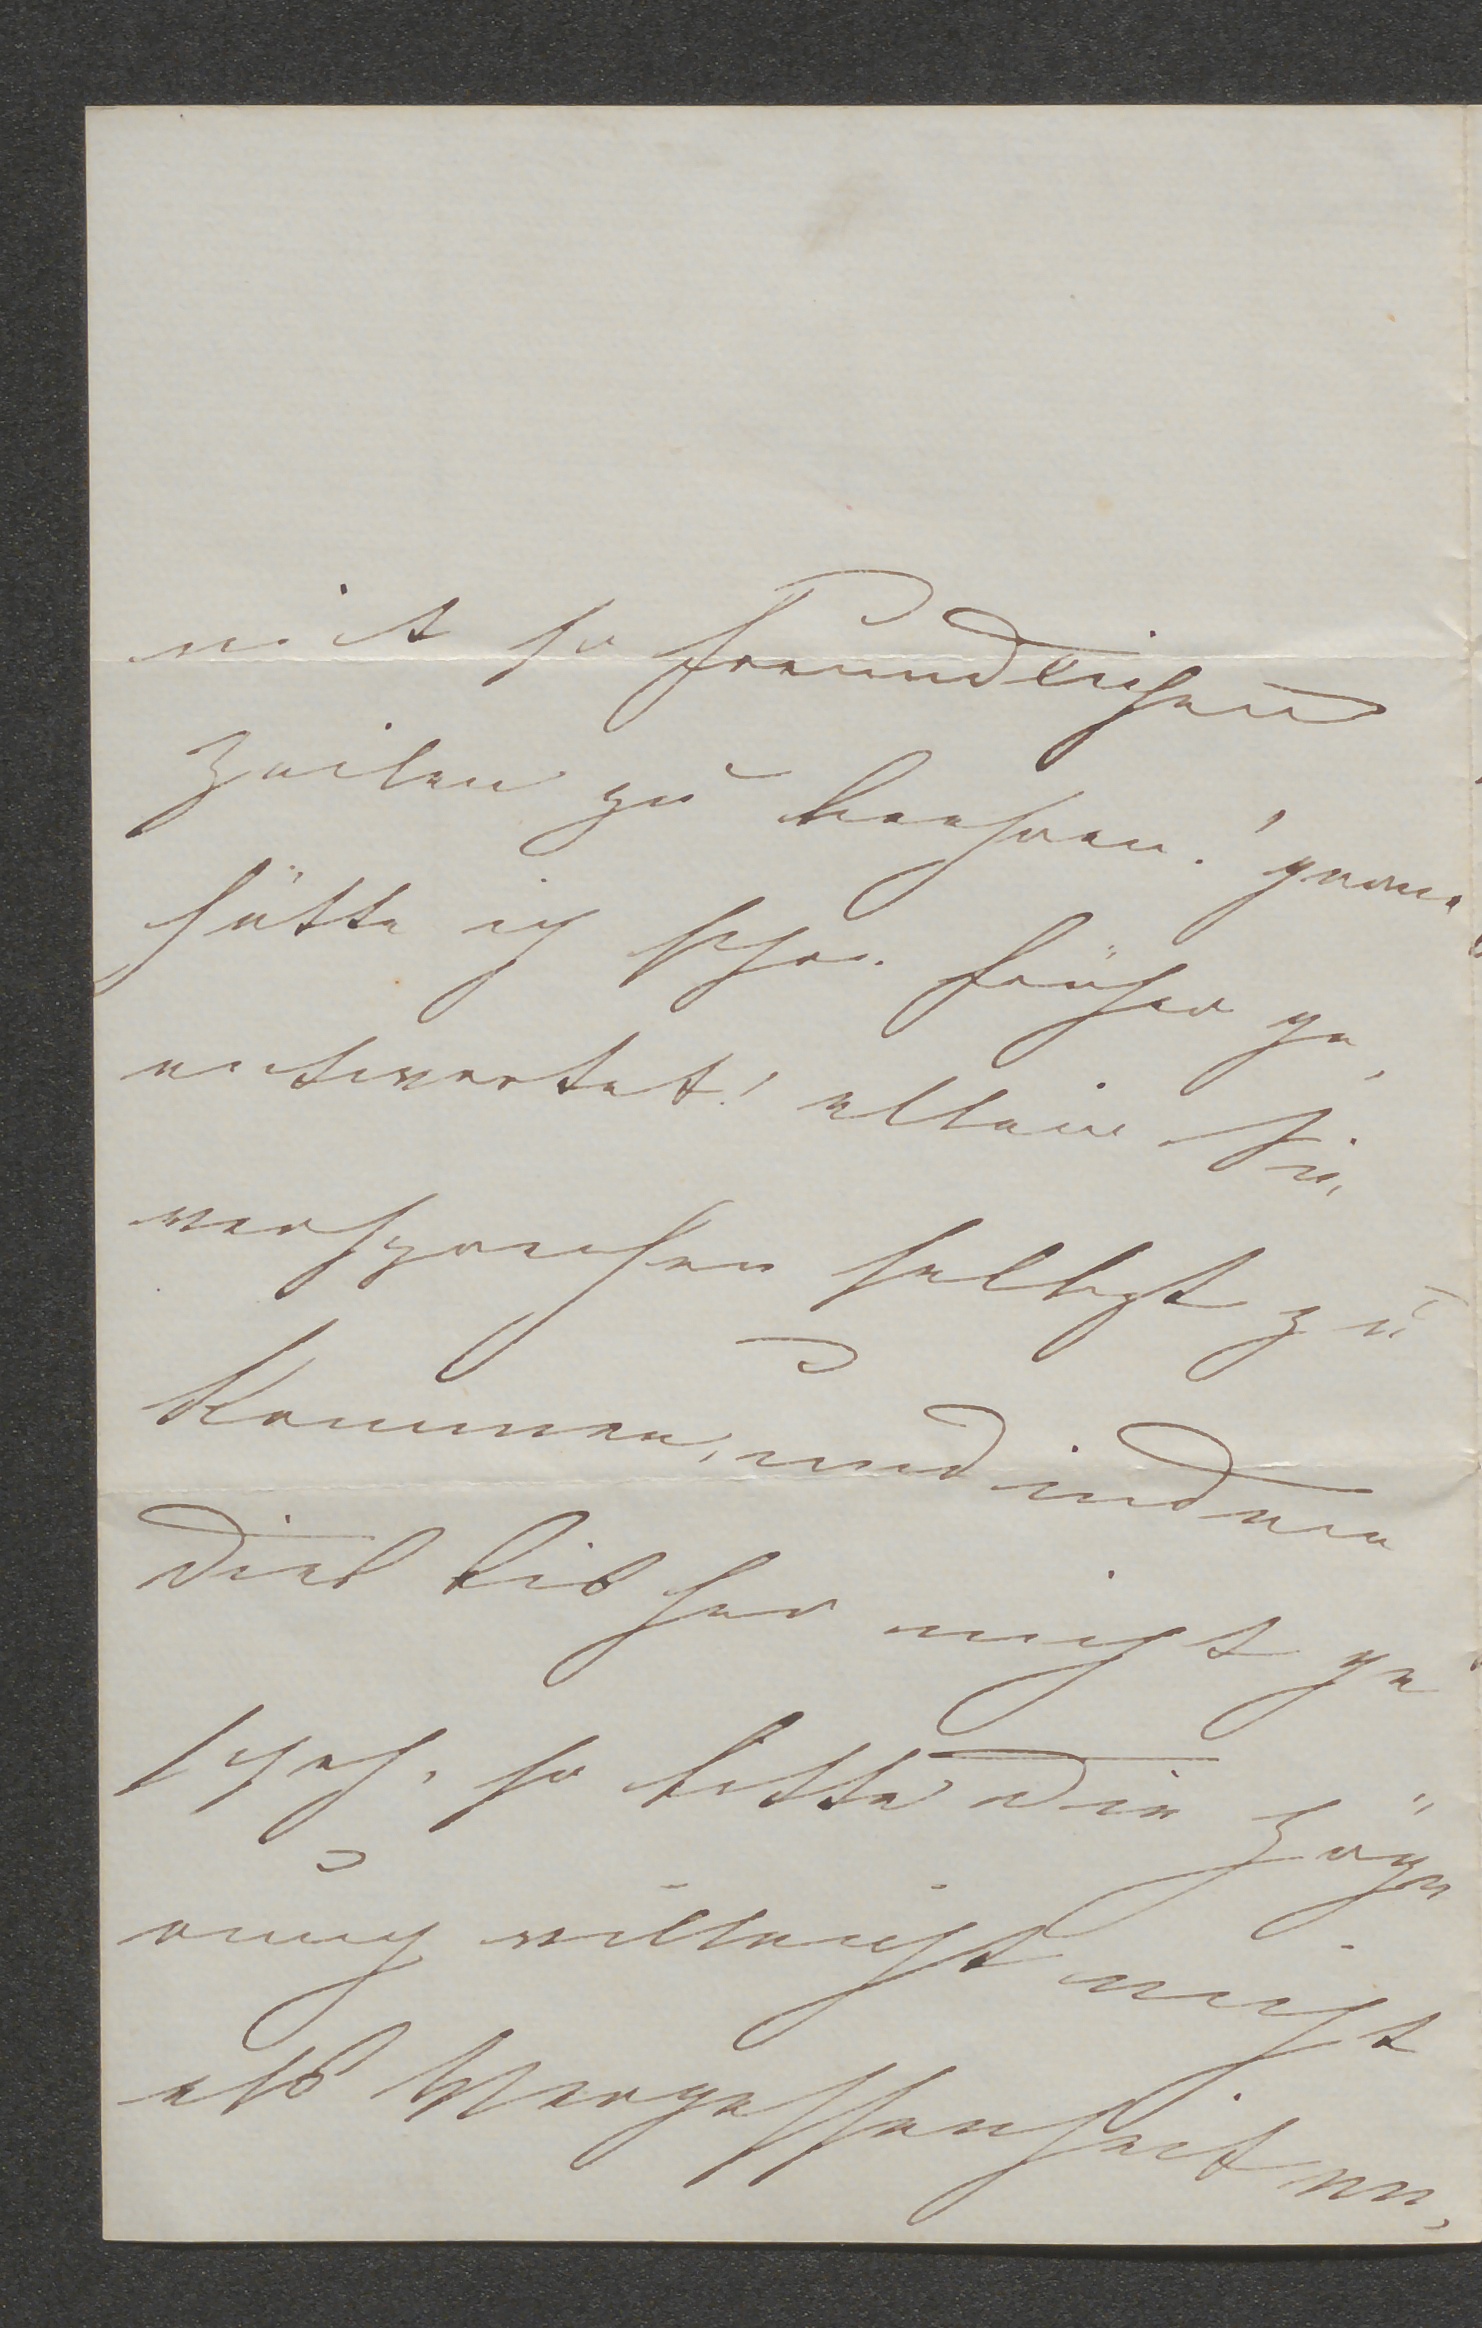 mit so freundlichen
Zeilen zu beehren! gerne
hätte ich schon früher ge¬
antwortet! allein Sie
versprachen selbst zu
kommen, und indem
dies bisher nicht ge
schah, so bitte die Zöge
rung vielleicht nicht
als Vergessenheit an¬